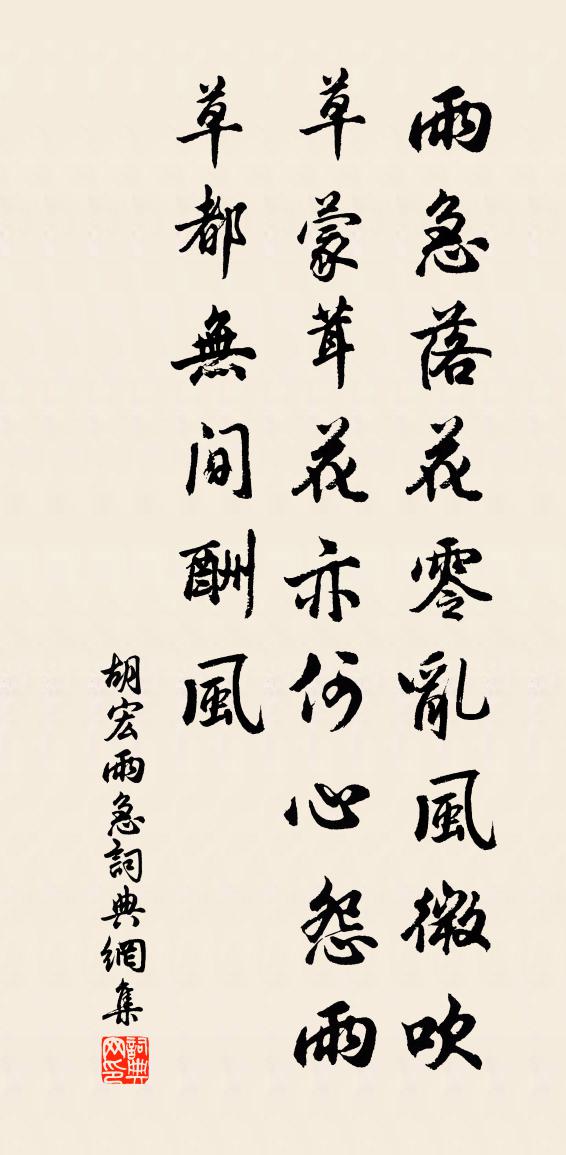 雨急落花零亂風微吹
草蒙茸花亦何心怨雨
草都無間酬風
胡宏雨急詞典網集
詞典网印